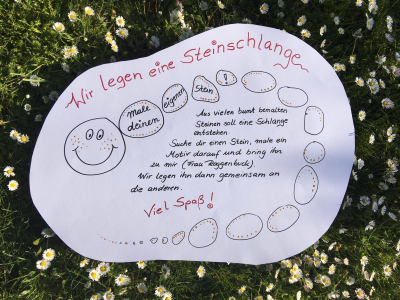 Wir legen eine Steinschlange
male
deinen
eigenen
Stein
!
Aus vielen bunt bemalten
Steinen soll eine Schlange
entstehen.
Suche dir einen Stein, male ein
Motiv darauf und bring ihn
zu mir (Frau Roggenbuck).
Wir legen ihn dann gemeinsam an
die anderen.
Viel Spaß!